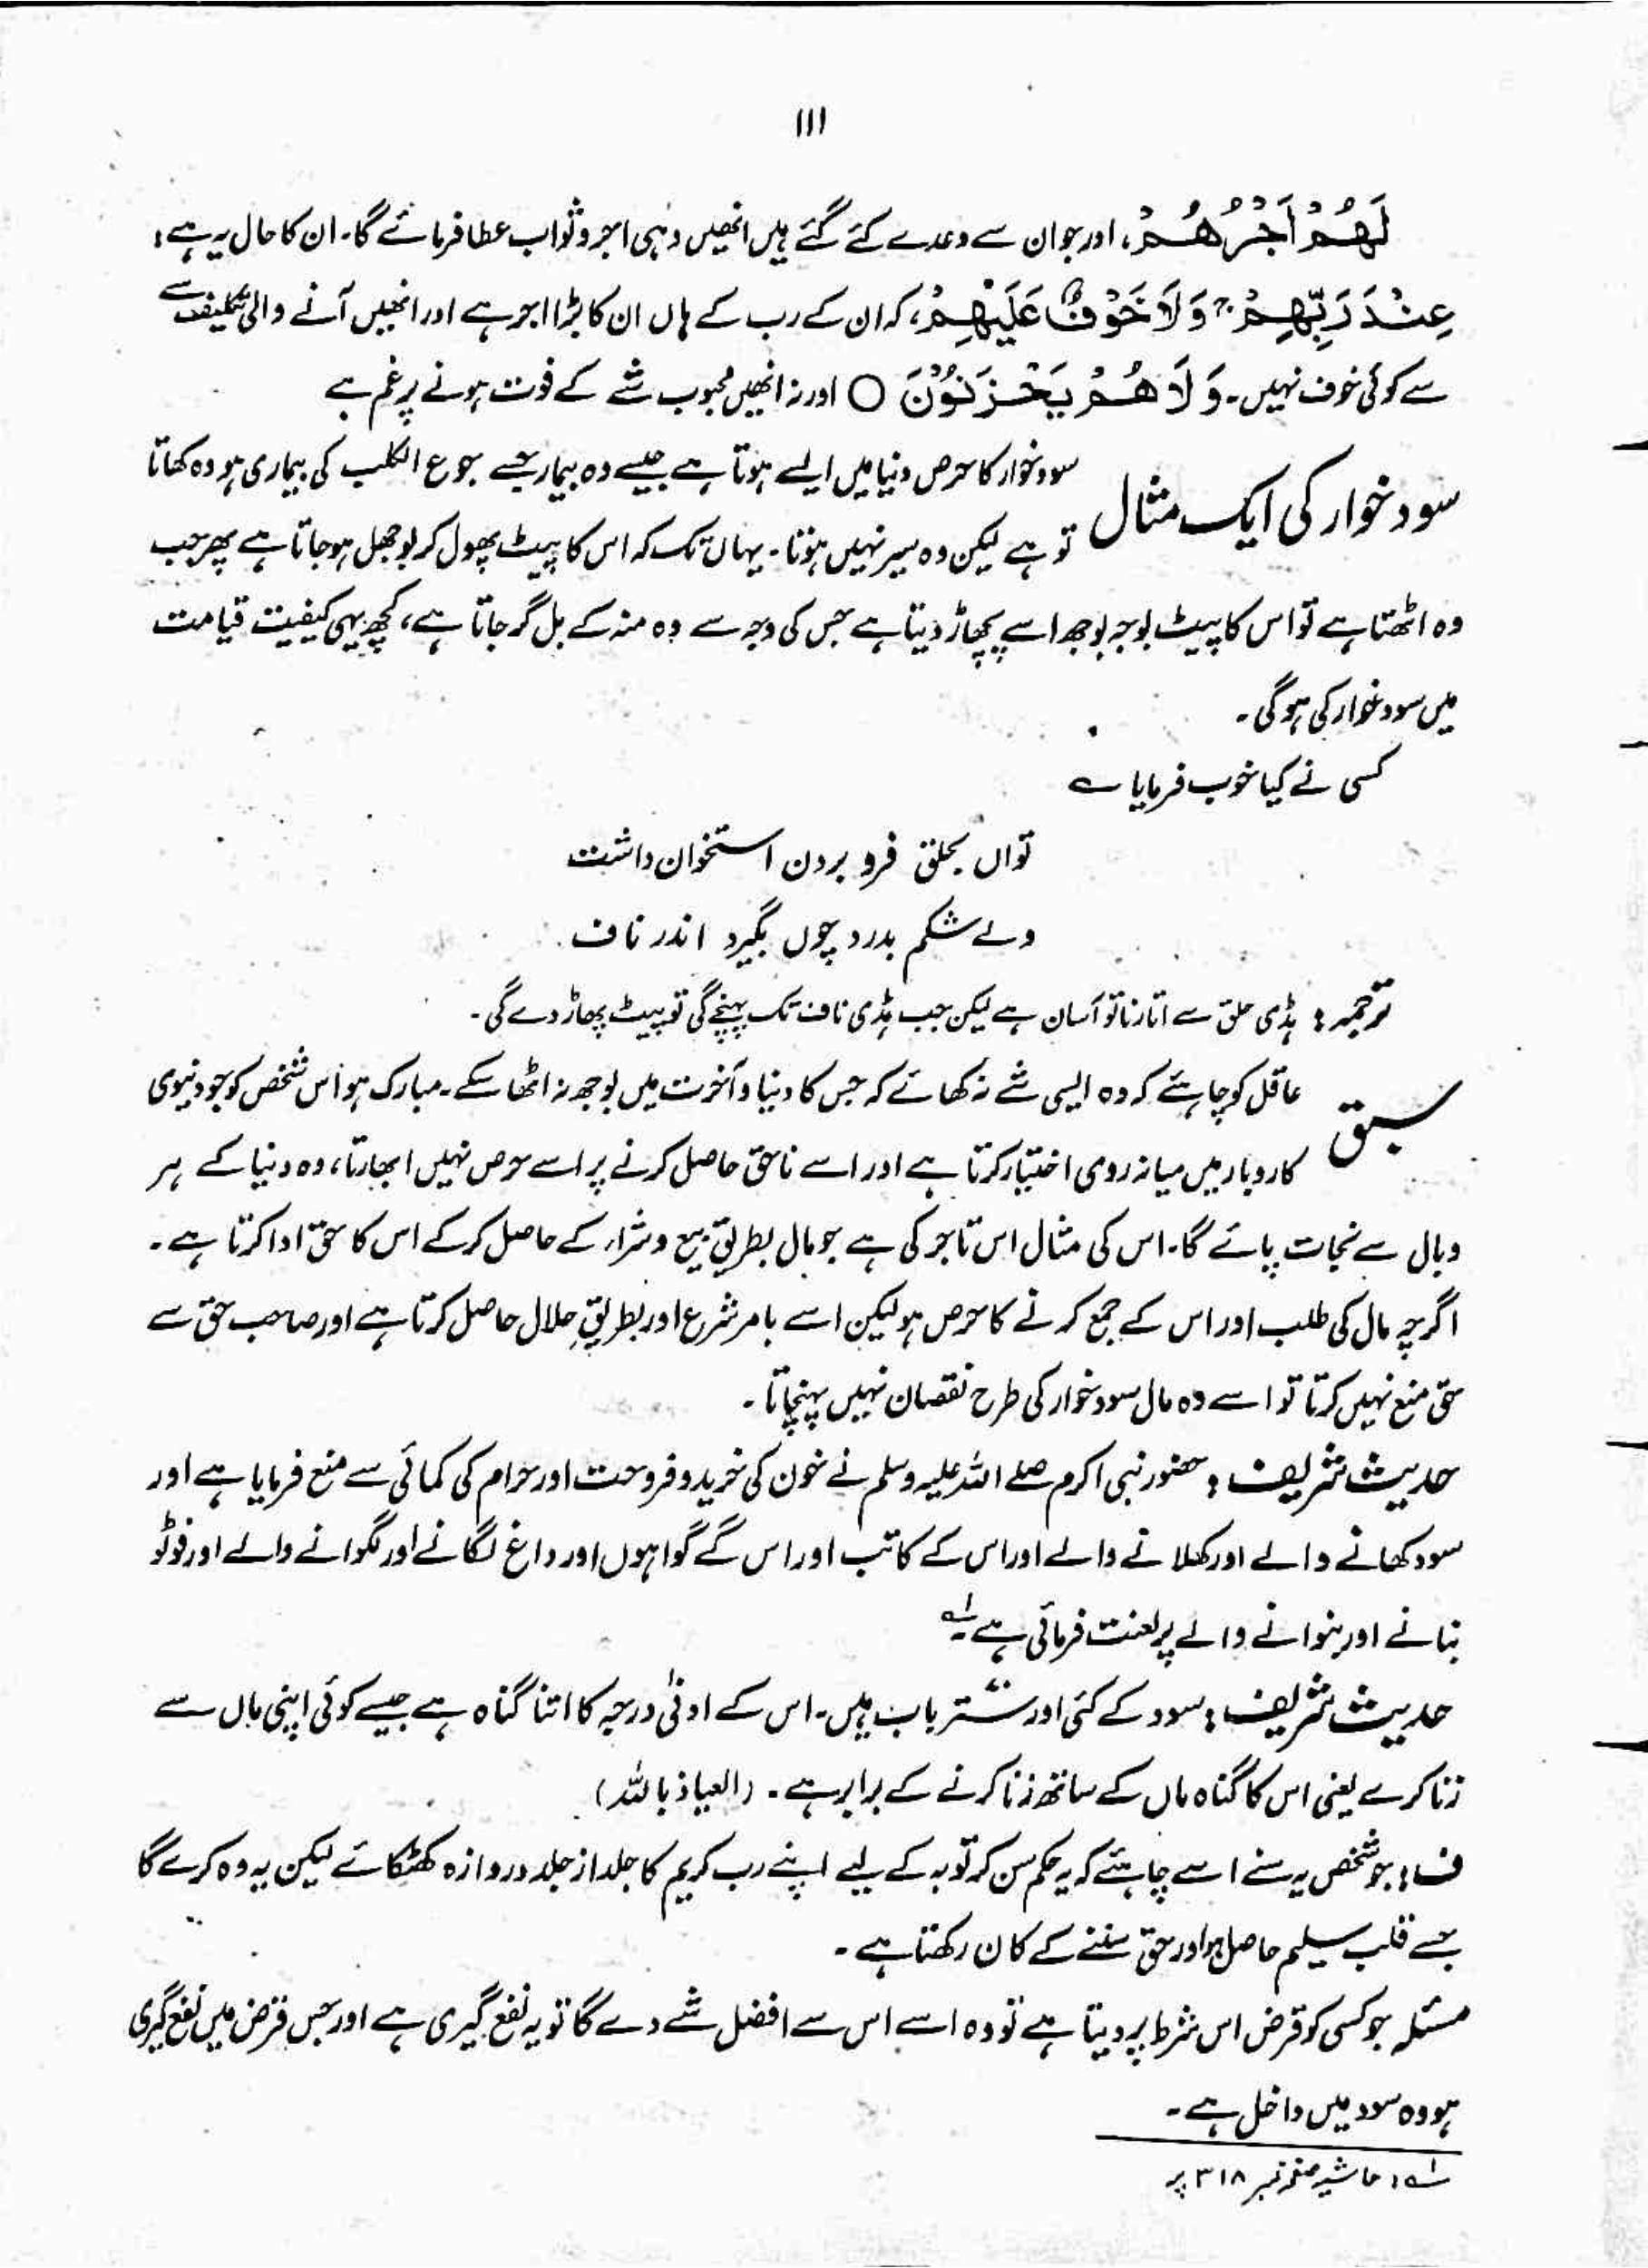 ۱۱۱
لَهُمْ اَجْرُهُمْ، اور جو ان سے وعدے کئے گئے ہیں انھیں وہی اجر و ثواب عطا فرمائے گا۔ ان کا حال یہ ہے:
عِنْدَ رَبِّهِمْ ۚ وَلَا خَوْفٌ عَلَيْهِمْ، کہ ان کے رب کے ہاں ان کا بڑا اجر ہے اور انھیں آنے والی تکلیف سے
سے کوئی خوف نہیں۔ وَلَا هُمْ يَحْزَنُوْنَ ○ اور نہ انھیں محبوب شے کے فوت ہونے پر غم ہے
سود خوار کی ایک مثال سود خوار کا حرص دنیا میں ایسے ہوتا ہے جیسے وہ بیمار جسے جوع الکلب کی بیماری ہو وہ کھاتا
تو ہے لیکن وہ سیر نہیں ہوتا۔ یہاں تک کہ اس کا پیٹ پھول کر بوجھل ہو جاتا ہے پھر جب
وہ اٹھتا ہے تو اس کا پیٹ بوجہ بوجھ اسے پچھاڑ دیتا ہے جس کی وجہ سے وہ منہ کے بل گر جاتا ہے، کچھ یہی کیفیت قیامت
میں سود خوار کی ہو گی۔
کسی نے کیا خوب فرمایا ؎
تواں بحلق فرو بردن استخوان داشت
ولے شکم بدرد چوں بگیرد اندر ناف
ترجمہ: ہڈی حلق سے اتارنا تو آسان ہے لیکن جب ہڈی ناف تک پہنچے گی تو پیٹ پھاڑ دے گی۔
سبق عاقل کو چاہئے کہ وہ ایسی شے نہ کھائے کہ جس کا دنیا و آخرت میں بوجھ نہ اٹھا سکے۔ مبارک ہو اس شخص کو جو دنیوی
کاروبار میں میانہ روی اختیار کرتا ہے اور اسے ناحق حاصل کرنے پر اسے حرص نہیں ابھارتا، وہ دنیا کے ہر
وبال سے نجات پائے گا۔ اس کی مثال اس تاجر کی ہے جو مال بطریق بیع و شراء کے حاصل کر کے اس کا حق ادا کرتا ہے۔
اگرچہ مال کی طلب اور اس کے جمع کرنے کا حرص ہو لیکن اسے بامر شرع اور بطریقِ حلال حاصل کرتا ہے اور صاحب حق سے
حق منع نہیں کرتا تو اسے وہ مال سود خوار کی طرح نقصان نہیں پہنچاتا۔
حدیث شریف: حضور نبی اکرم صلے اللہ علیہ وسلم نے خون کی خرید و فروخت اور حرام کی کمائی سے منع فرمایا ہے اور
سود کھانے والے اور کھلانے والے اور اس کے کاتب اور اس کے گواہوں اور داغ لگانے اور لگوانے والے اور فوٹو
بنانے اور بنوانے والے پر لعنت فرمائی ہے۔ لہ
حدیث شریف: سود کے کئی اور ستّر باب ہیں۔ اس کے ادنیٰ درجہ کا اتنا گناہ ہے جیسے کوئی اپنی ماں سے
زنا کرے یعنی اس کا گناہ ماں کے ساتھ زنا کرنے کے برابر ہے۔ (العیاذ باللہ)
ف: جو شخص یہ سنے اسے چاہئے کہ یہ حکم سن کر توبہ کے لیے اپنے رب کریم کا جلد از جلد دروازہ کھٹکائے لیکن یہ وہ کرے گا
جسے قلب سلیم حاصل ہو اور حق سننے کے کان رکھتا ہے۔
مسئلہ جو کسی کو قرض اس شرط پر دیتا ہے تو وہ اسے اس سے افضل شے دے گا تو یہ نفع گیری ہے اور جس قرض میں نفع گیری
ہو وہ سود میں داخل ہے۔
لہ: حاشیہ صفحہ نمبر ۳۱۸ پر